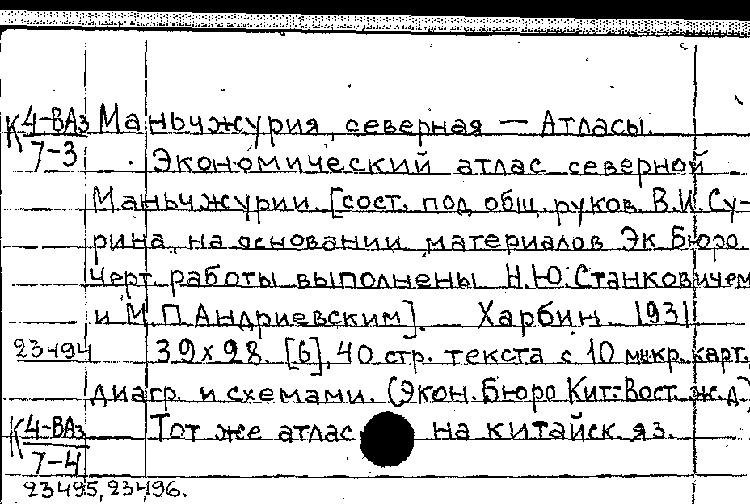 К 4-ВАз Маньчжурия северная — Атласы.
7-3 Экономический атлас северной
Маньчжурии. [сост. под общ. руков. В.И. Су-
рина, на основании материалов Эк. Бюро.
Черт. работы выполнены Н.Ю. Станковичем
и М.П. Андриевским]. Харбин. 1931
23494 39х28. [6], 40 стр. текста с 10 микр. карт.,
диагр. и схемами. (Экон. Бюро Кит.-Вост. ж.д.)
К 4-ВАз Тот же атлас на китайск. яз.
7-4
23495, 23496.